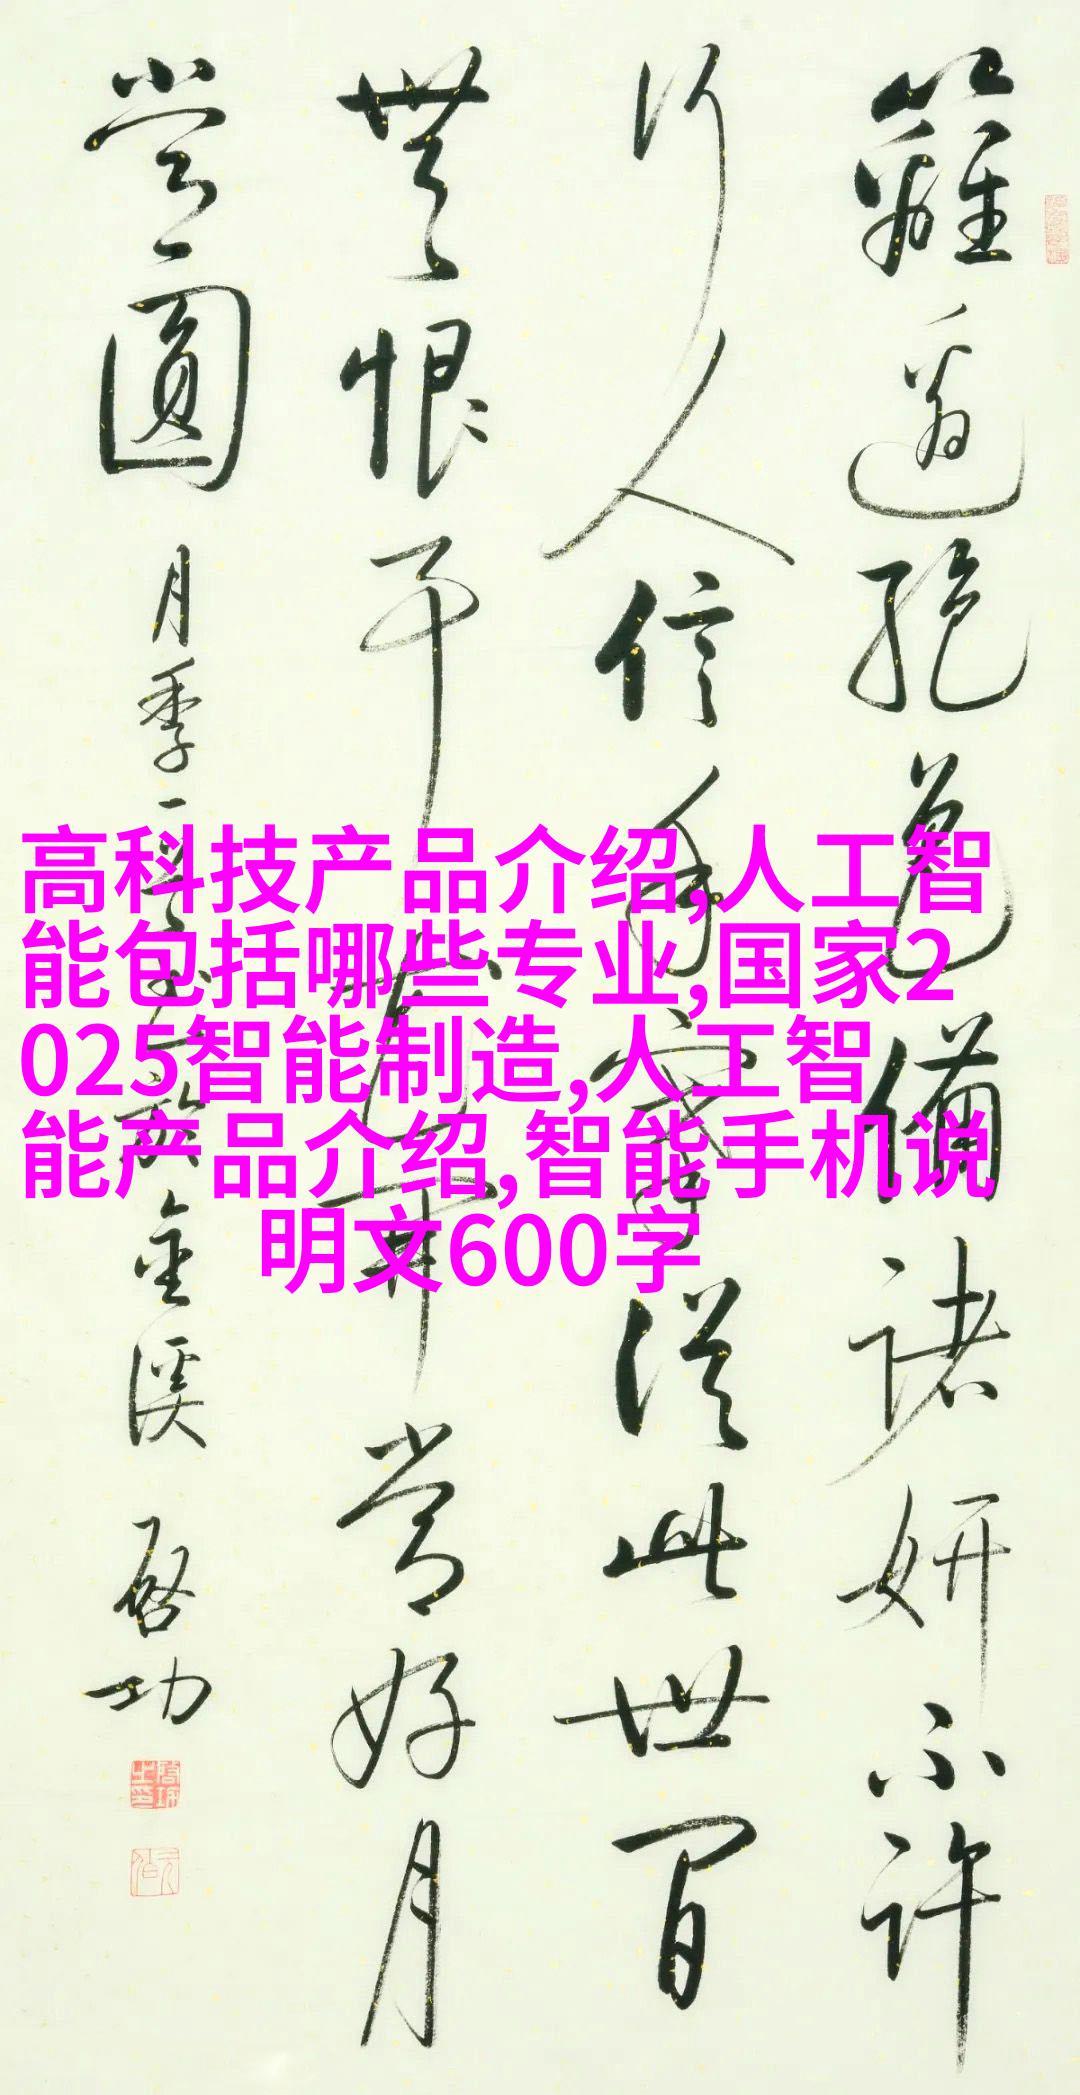 籬邊絕色備諸妍不許
行人信手從此世間
無恨常好月
常圓 月季一金溪 启功
高科技产品介绍,人工智
能包括哪些专业,国家2
025智能制造,人工智
能产品介绍,智能手机说
明文600字